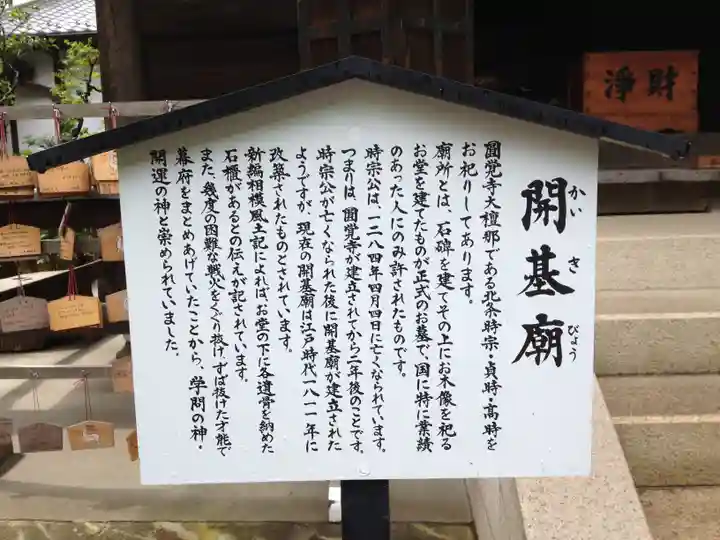 開基廟
かい
き
びょう
圓覚寺大檀那である北条時宗・貞時・高時を
お祀りしてあります。
廟所とは、石碑を建てその上にお木像を祀る
お堂を建てたものが正式のお墓で、国に特に業績
のあった人にのみ許されたものです。
時宗公は、一二八四年四月四日に亡くなられています。
つまりは、圓覚寺が建立されてから二年後のことです。
時宗公が亡くなられた後に開基廟が建立された
ようですが、現在の開基廟は江戸時代一八一一年に
改築されたものとされています。
新編相模風土記によれば、お堂の下に各遺骨を納めた
石櫃があるとの伝えが記されています。
また、幾度の困難な戦火をくぐり抜け、ずば抜けた才能で
幕府をまとめあげていたことから、学問の神・
開運の神と崇められていました。
浄財